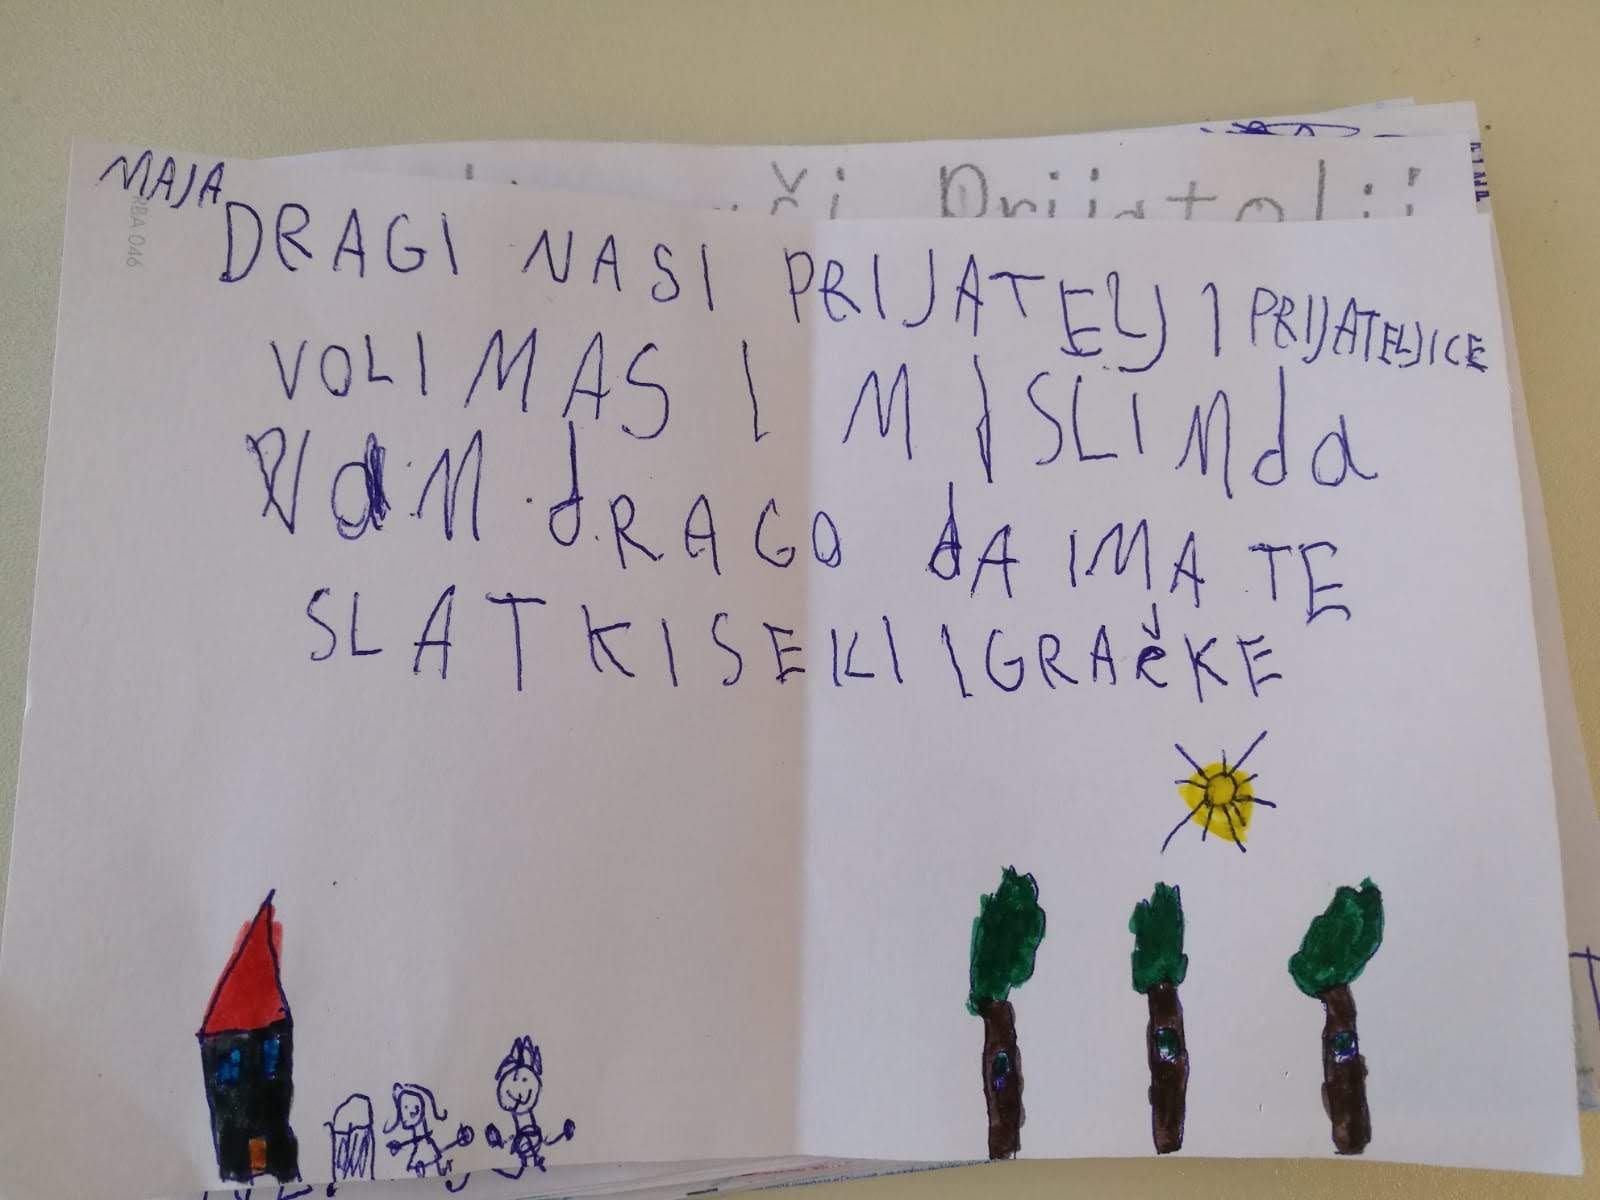 MAJA
RBA 046
DRAGI NASI PRIJATELJ I PRIJATELJICE
VOLIMAS I MISLIMda
VaM dRAGO dA IMATE
SLATKISEKI IGRAČKE